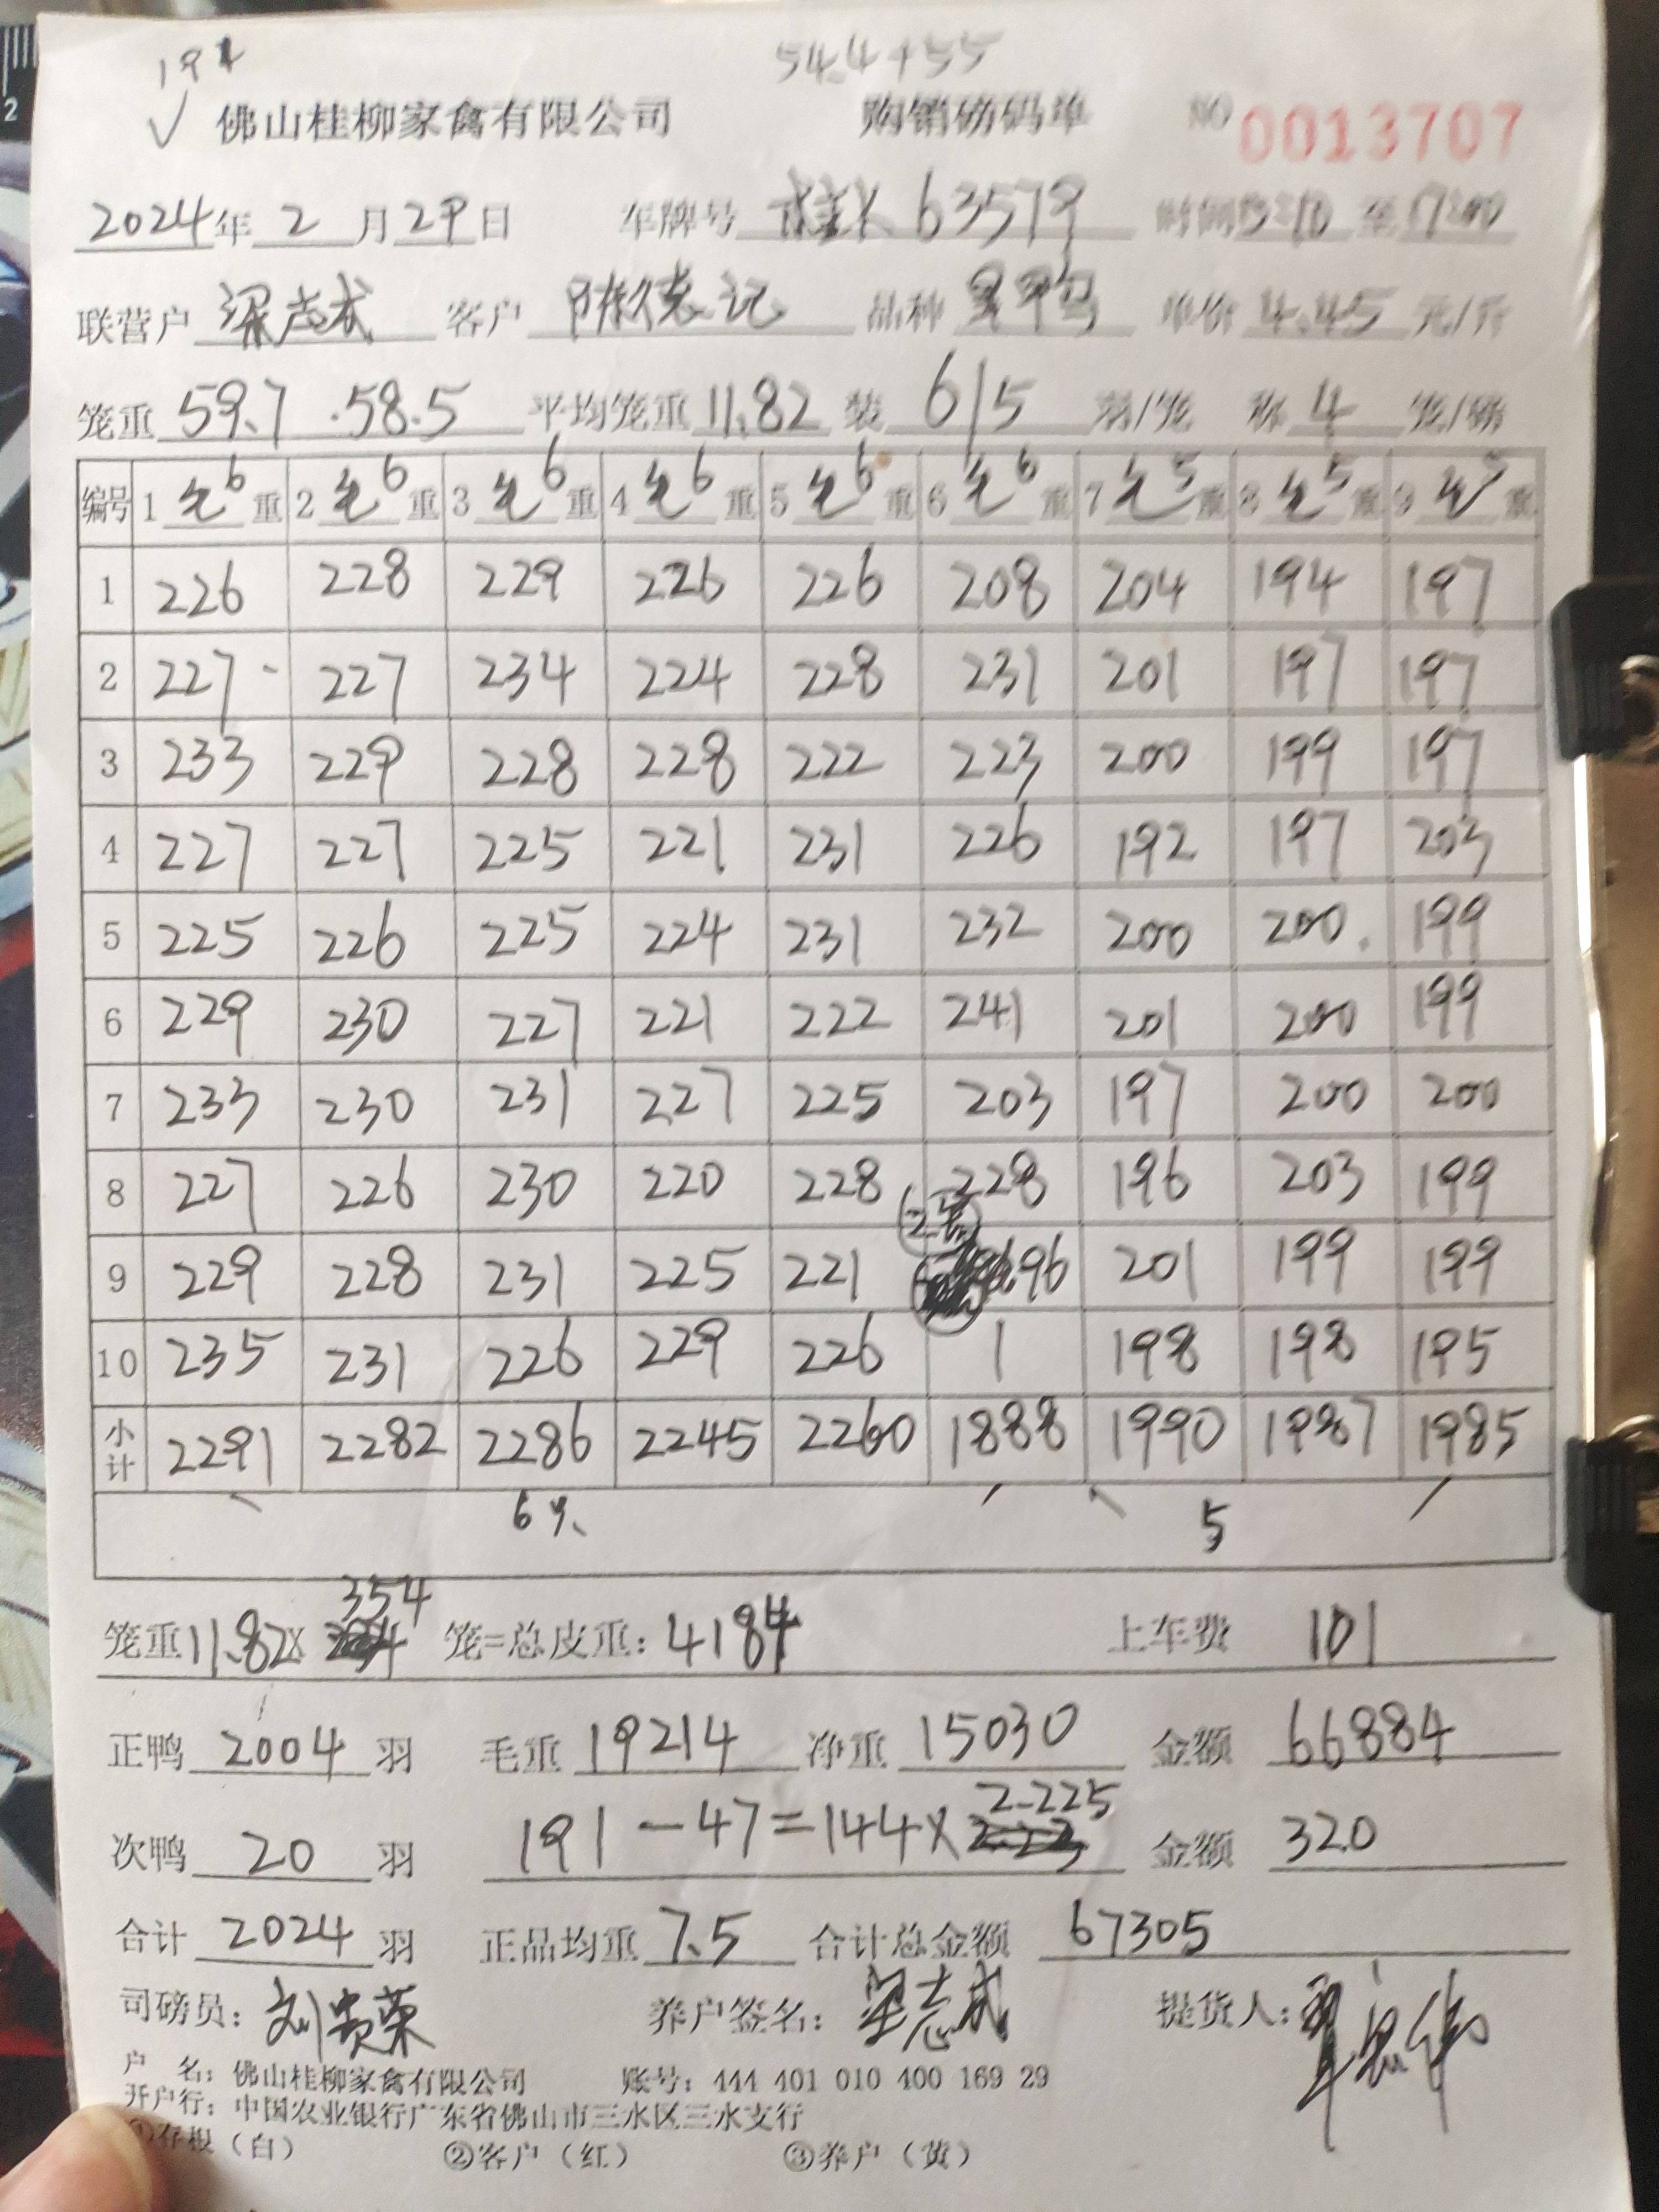 544+55
佛山桂柳家禽有限公司 购销磅码单 NO 0013707
2024年 2 月 29 日 车牌号 63579 时间 至 17:00
联营户 梁志成 客户 陈德记 品种 单价 4.45 元/斤
笼重 59.7 .58.5 平均笼重 11.82 装 6/5 羽/笼 称 4 笼/磅
编号 1 毛6 重 2 毛6 重 3 毛6 重 4 毛6 重 5 毛6 重 6 毛6 重 7 毛5 重 8 毛5 重 9 毛5 重
1 226 228 229 226 226 208 204 194 197
2 227 227 234 224 228 231 201 197 197
3 233 229 228 228 222 223 200 199 197
4 227 227 225 221 231 226 192 197 203
5 225 226 225 224 231 232 200 200 199
6 229 230 227 221 222 241 201 200 199
7 233 230 231 227 225 203 197 200 200
8 227 226 230 220 228 228 196 203 199
9 229 228 231 225 221 96 201 199 199
10 235 231 226 229 226 1 198 198 195
小计 2291 2282 2286 2245 2260 1888 1990 1987 1985
6 5
笼重 11.82X 354 笼=总皮重: 4184 上车费 101
正鸭 2004 羽 毛重 19214 净重 15030 金额 66884
次鸭 20 羽 191-47=144X 2.225 金额 320
合计 2024 羽 正品均重 7.5 合计总金额 67305
司磅员: 刘贵荣 养户签名: 梁志成 提货人:
户 名: 佛山桂柳家禽有限公司 账号: 444 401 010 400 169 29
开户行: 中国农业银行广东省佛山市三水区三水支行
①存根(白) ②客户(红) ③养户(黄)